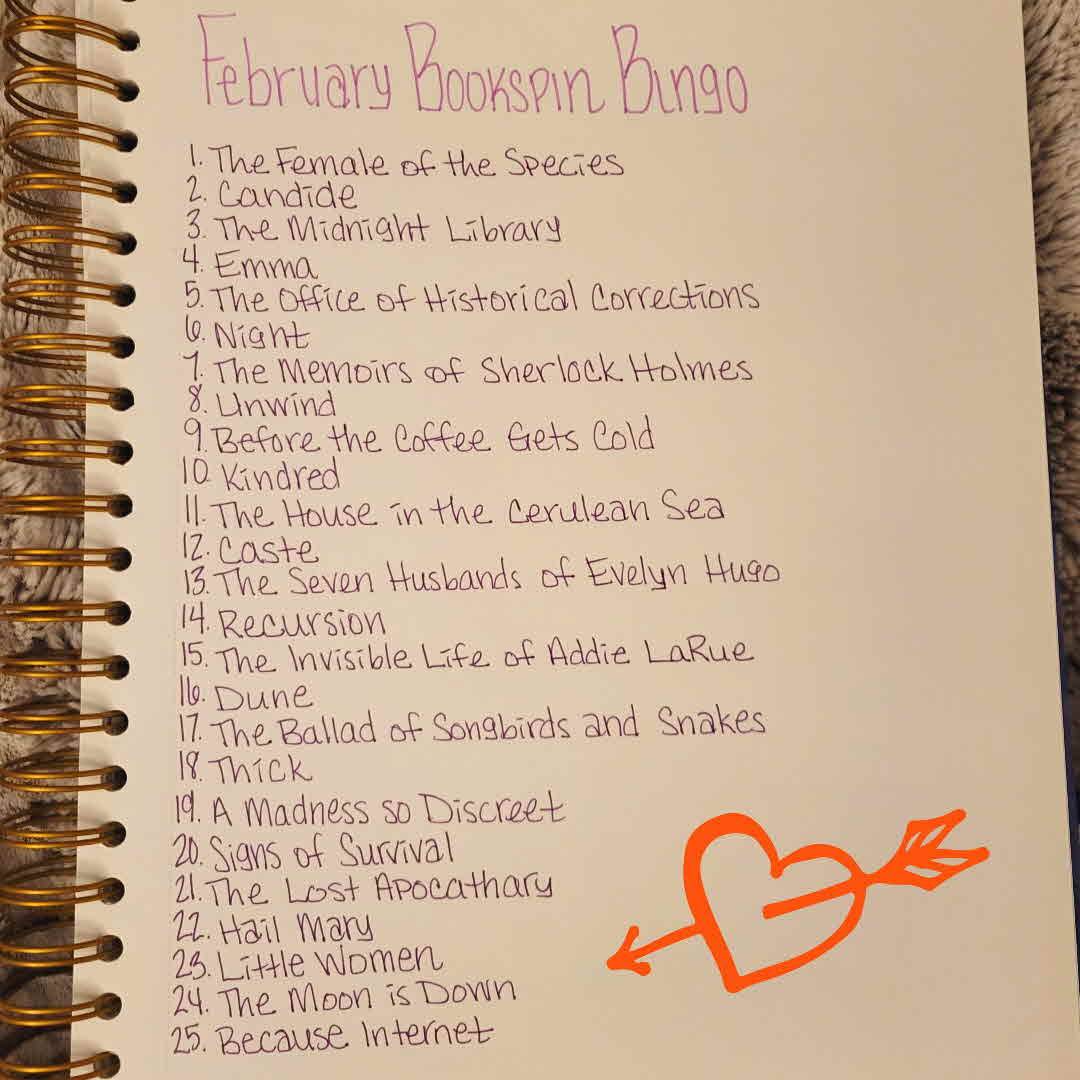 February Bookspin Bingo
1. The Female of the Species
2. Candide
3. The Midnight Library
4. Emma
5. The Office of Historical Corrections
6. Night
7. The Memoirs of Sherlock Holmes
8. Unwind
9. Before the Coffee Gets Cold
10. Kindred
11. The House in the Cerulean Sea
12. Caste
13. The Seven Husbands of Evelyn Hugo
14. Recursion
15. The Invisible Life of Addie LaRue
16. Dune
17. The Ballad of Songbirds and Snakes
18. Thick
19. A Madness so Discreet
20. Signs of Survival
21. The Lost Apocathary
22. Hail Mary
23. Little Women
24. The Moon is Down
25. Because Internet